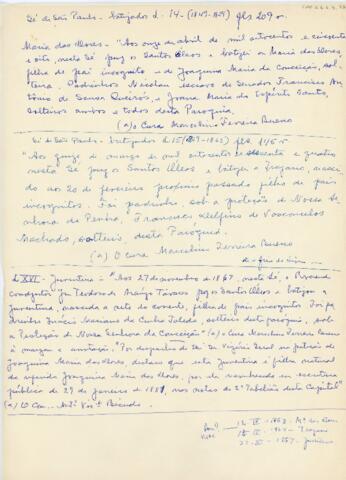 Sé de São Paulo - batizados L. 14 - (1849-1859) fls 209 v.
Maria das Dores - "Aos onze de abril de mil oitocentos e cincoenta
e oito nesta Sé puz os Santos Oleos e batizei a Maria das Dores
filha de pai incognito e de Joaquina Maria da Conceição, sol-
teira. Padrinhos Nicolau escravo do Senador Francisco An-
tônio de Souza Queiros, e Joana Maria do Espírito Santo,
solteiros ambos e todos desta Paroquia.
(a) o Cura Marcelino Ferreira Bueno
Sé de São Paulo - batizados L 15 (1859-1862) fls. 145 v
"Aos quinze de março de mil oitocentos e sessenta e quatro
nesta Sé puz os Santos Oleos e batizei a Trajano, nasci-
do aos 20 de fevereiro proximo passado filho de pais
incognitos. Foi padrinho, sob a proteção de Nossa Se-
nhora da Penha, Francisco Delfino de Vasconcelos
Machado, solteiro, desta Paroquia.
(a) O Cura Marcelino Ferreira Bueno
L. XVI - Juventina - "Aos 27 de novembro de 1867, nesta Sé, o Reverendo
coadjutor Joaq Teodoro de Araujo Tavares poz os Santos Oleos e batizou a
Juventina, nascada a sete do corrente, filha de pais incognitos. Foi pa-
drinho Inacio Mariano da Cunha Toledo solteiro desta paroquia, sob
a Proteção de Nossa Senhora da Conceição" (a) o Cura Marcelino Ferreira Bueno
à margem a anotação: "Por despacho do Sr Vigario Geral na petição de
Joaquina Maria das Dores declaro que esta Juventina é filha natural
da referida Joaquina Maria das Dores, por ela reconhecida em escritura
pública de 29 de janeiro de 1881, nas notas do 2º Tabelião desta Capital"